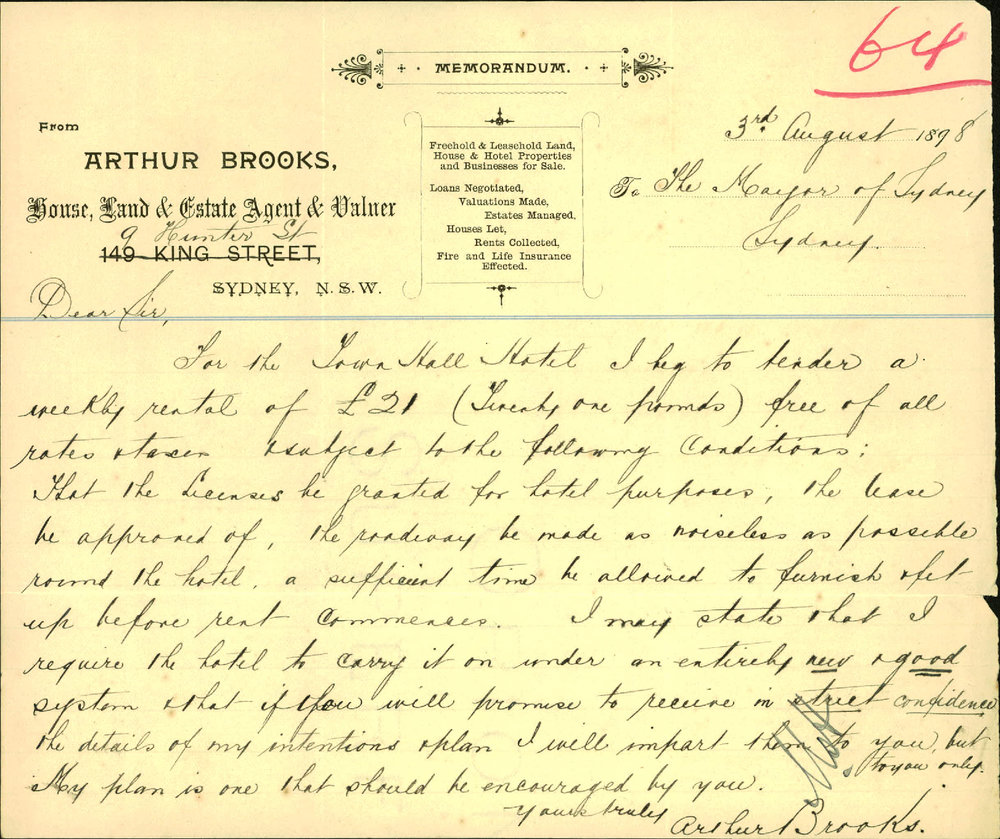 64
MEMORANDUM.
3rd. August 1898
From
ARTHUR BROOKS,
House, Land & Estate Agent & Valuer
9 Hunter St
149 KING STREET,
SYDNEY, N.S.W.
Freehold & Leasehold Land,
House & Hotel Properties
and Businesses for Sale.
Loans Negotiated,
Valuations Made,
Estates Managed,
Houses Let,
Rents Collected,
Fire and Life Insurance
Effected.
To The Mayor of Sydney
Sydney.
Dear Sir,
For the Town Hall Hotel I beg to tender a
weekly rental of £21 (Twenty one pounds) free of all
rates & taxes & subject to the following conditions:
That the Licenses be granted for hotel purposes, the lease
be approved of, the roadway be made as noiseless as possible
round the hotel, a sufficient time be allowed to furnish & fit
up before rent commences. I may state that I
require the hotel to carry it on under an entirely new & good
system & that if you will promise to receive in strict confidence
the details of my intentions & plan I will impart them to you, but
to you only.
My plan is one that should be encouraged by you.
Yours truly
Arthur Brooks.